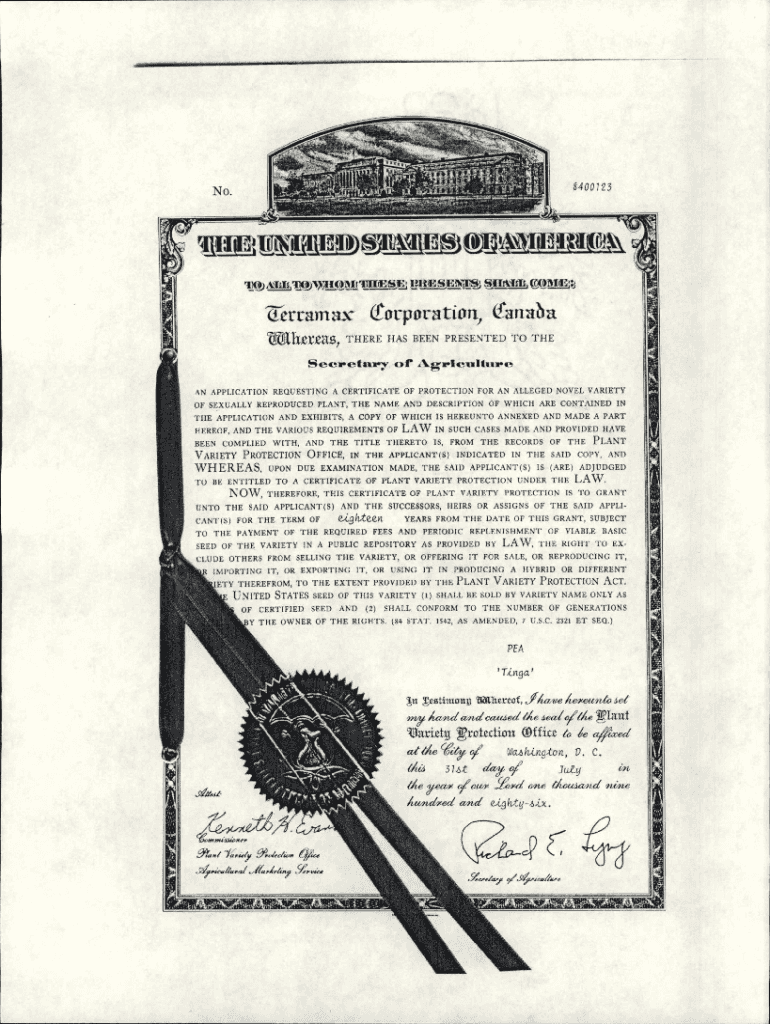 No.
8400123
THE UNITED STATES OF AMERICA
TO ALL TO WHOM THESE PRESENTS SHALL COME:
Terramax Corporation, Canada
Whereas, THERE HAS BEEN PRESENTED TO THE
Secretary of Agriculture
AN APPLICATION REQUESTING A CERTIFICATE OF PROTECTION FOR AN ALLEGED NOVEL VARIETY
OF SEXUALLY REPRODUCED PLANT, THE NAME AND DESCRIPTION OF WHICH ARE CONTAINED IN
THE APPLICATION AND EXHIBITS, A COPY OF WHICH IS HEREUNTO ANNEXED AND MADE A PART
HEREOF, AND THE VARIOUS REQUIREMENTS OF LAW IN SUCH CASES MADE AND PROVIDED HAVE
BEEN COMPLIED WITH, AND THE TITLE THERETO IS, FROM THE RECORDS OF THE PLANT
VARIETY PROTECTION OFFICE, IN THE APPLICANT(S) INDICATED IN THE SAID COPY, AND
WHEREAS, UPON DUE EXAMINATION MADE, THE SAID APPLICANT(S) IS (ARE) ADJUDGED
TO BE ENTITLED TO A CERTIFICATE OF PLANT VARIETY PROTECTION UNDER THE LAW.
NOW, THEREFORE, THIS CERTIFICATE OF PLANT VARIETY PROTECTION IS TO GRANT
UNTO THE SAID APPLICANT(S) AND THE SUCCESSORS, HEIRS OR ASSIGNS OF THE SAID APPLI-
CANT(S) FOR THE TERM OF eighteen YEARS FROM THE DATE OF THIS GRANT, SUBJECT
TO THE PAYMENT OF THE REQUIRED FEES AND PERIODIC REPLENISHMENT OF VIABLE BASIC
SEED OF THE VARIETY IN A PUBLIC REPOSITORY AS PROVIDED BY LAW, THE RIGHT TO EX-
CLUDE OTHERS FROM SELLING THE VARIETY, OR OFFERING IT FOR SALE, OR REPRODUCING IT,
OR IMPORTING IT, OR EXPORTING IT, OR USING IT IN PRODUCING A HYBRID OR DIFFERENT
VARIETY THEREFROM, TO THE EXTENT PROVIDED BY THE PLANT VARIETY PROTECTION ACT.
UNITED STATES SEED OF THIS VARIETY (1) SHALL BE SOLD BY VARIETY NAME ONLY AS
OF CERTIFIED SEED AND (2) SHALL CONFORM TO THE NUMBER OF GENERATIONS
BY THE OWNER OF THE RIGHTS. (84 STAT. 1542, AS AMENDED, 7 U.S.C. 2321 ET SEQ.)
PEA
'Tinga'
In Testimony Whereof, I have hereunto set
my hand and caused the seal of the Plant
Variety Protection Office to be affixed
at the City of Washington, D. C.
this 31st day of July in
the year of our Lord one thousand nine
hundred and eighty-six.
Attest:
Kenneth H. Evans
Commissioner
Plant Variety Protection Office
Agricultural Marketing Service
Richard E. Lyng
Secretary of Agriculture